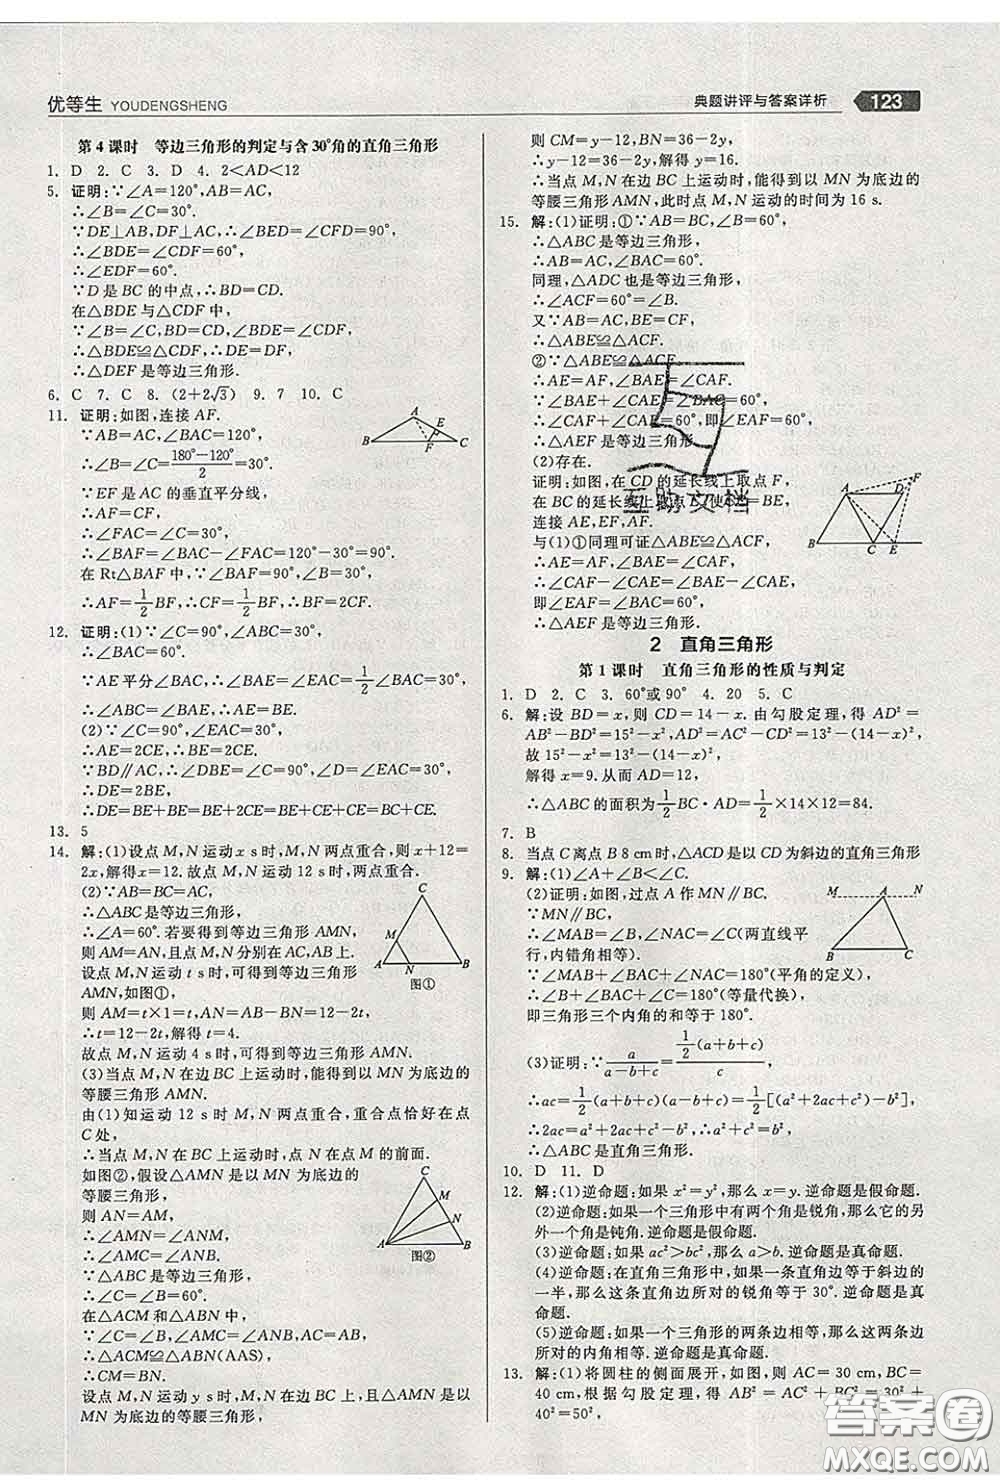 优等生 YOUDENGSHENG
典题讲评与答案详析 123
第4课时 等边三角形的判定与含30°角的直角三角形
1. D 2. C 3. D 4. 2<AD<12
5. 证明:∵∠A=120°,AB=AC,
∴∠B=∠C=30°.
∵DE⊥AB,DF⊥AC,∴∠BED=∠CFD=90°,
∴∠BDE=∠CDF=60°,
∴∠EDF=60°.
∵D是BC的中点,∴BD=CD.
在△BDE与△CDF中,
∵∠B=∠C,BD=CD,∠BDE=∠CDF,
∴△BDE≌△CDF,∴DE=DF,
∴△DEF是等边三角形.
6. C 7. C 8. (2+2√3) 9. 7 10. C
11. 证明:如图,连接AF.
∵AB=AC,∠BAC=120°,
∴∠B=∠C=(180°-120°)/2=30°.
∵EF是AC的垂直平分线,
∴AF=CF,
∴∠FAC=∠C=30°,
∴∠BAF=∠BAC-∠FAC=120°-30°=90°.
在Rt△BAF中,∵∠BAF=90°,∠B=30°,
∴AF=1/2BF,∴CF=1/2BF,∴BF=2CF.
A
E
B
F
C
12. 证明:(1)∵∠C=90°,∠ABC=30°,
∴∠BAC=60°.
∵AE平分∠BAC,∴∠BAE=1/2∠BAC=30°,
∴∠ABC=∠BAE,∴AE=BE.
(2)∵∠C=90°,∠CAE=∠BAE=30°,
∴AE=2CE,∴BE=2CE.
∵BD∥AC,∴∠DBE=∠C=90°,∠D=∠CAE=30°,
∴DE=2BE,
∴DE=BE+BE=BE+2CE=BE+CE+CE=BC+CE.
13. 5
14. 解:(1)设点M,N运动x s时,M,N两点重合,则x+12=
2x,解得x=12.故点M,N运动12 s时,M,N两点重合.
(2)∵AB=AC=BC,
∴△ABC是等边三角形,
∴∠A=60°.若要得到等边三角形AMN,
则AM=AN,且点M,N分别在AC,AB上.
设点M,N运动t s时,可得到等边三角形
AMN,如图①,
则AM=t×1=t,AN=AB-BN=12-2t,
∴t=12-2t,解得t=4.
故点M,N运动4 s时,可得到等边三角形AMN.
C
M
A
N
B
图①
(3)当点M,N在边BC上运动时,可以得到以MN为底边的
等腰三角形AMN.
由(1)知运动12 s时M,N两点重合,重合点恰好在点
C处,
∴当点M,N在边BC上运动时,点N在点M的前面.
如图②,假设△AMN是以MN为底边的
等腰三角形,
则AN=AM,
∴∠AMN=∠ANM,
∴∠AMC=∠ANB.
∵△ABC是等边三角形,
∴∠C=∠B=60°.
在△ACM和△ABN中,
∵∠C=∠B,∠AMC=∠ANB,AC=AB,
∴△ACM≌△ABN(AAS),
∴CM=BN.
C
M
N
A
B
图②
设点M,N运动y s时,M,N两点在边BC上,且△AMN是以
MN为底边的等腰三角形,
则CM=y-12,BN=36-2y,
∴y-12=36-2y,解得y=16.
∴当点M,N在边BC上运动时,能得到以MN为底边的
等腰三角形AMN,此时点M,N运动的时间为16 s.
15. 解:(1)证明:①∵AB=BC,∠B=60°,
∴△ABC是等边三角形.
同理,△ADC也是等边三角形,
∴∠ACF=60°=∠B.
又∵AB=AC,BE=CF,
∴△ABE≌△ACF.
②∵△ABE≌△ACF,
∴AE=AF,∠BAE=∠CAF.
∵∠BAE+∠CAE=∠BAC=60°,
∴∠CAF+∠CAE=60°,即∠EAF=60°,
∴△AEF是等边三角形.
(2)存在.
证明:如图,在CD的延长线上取点F,
在BC的延长线上取点E,使CF=BE,
连接AE,EF,AF.
与(1)①同理可证△ABE≌△ACF,
∴AE=AF,∠BAE=∠CAF,
∴∠CAF-∠CAE=∠BAE-∠CAE,
即∠EAF=∠BAC=60°,
∴△AEF是等边三角形.
F
A
D
B
C
E
互助文档
2 直角三角形
第1课时 直角三角形的性质与判定
1. D 2. C 3. 60°或90° 4. 20 5. C
6. 解:设BD=x,则CD=14-x.由勾股定理,得AD²=
AB²-BD²=15²-x²,AD²=AC²-CD²=13²-(14-x)²,
故15²-x²=13²-(14-x)²,
解得x=9.从而AD=12,
∴△ABC的面积为1/2BC·AD=1/2×14×12=84.
7. B
8. 当点C离点B 8 cm时,△ACD是以CD为斜边的直角三角形
9. 解:(1)∠A+∠B<∠C.
(2)证明:如图,过点A作MN∥BC.
∵MN∥BC,
∴∠MAB=∠B,∠NAC=∠C(两直线平
行,内错角相等).
∵∠MAB+∠BAC+∠NAC=180°(平角的定义),
∴∠B+∠BAC+∠C=180°(等量代换),
即三角形三个内角的和等于180°.
M
A
N
B
C
(3)证明:∵a/(a-b+c)=1/2(a+b+c)/c,
∴ac=1/2(a+b+c)(a-b+c)=1/2[(a²+2ac+c²)-b²],
∴2ac=a²+2ac+c²-b²,∴a²+c²=b²,
∴△ABC是直角三角形.
10. D 11. D
12. 解:(1)逆命题:如果x²=y²,那么x=y.逆命题是假命题.
(2)逆命题:如果一个三角形中有两个角是锐角,那么它的另
外一个角是钝角.逆命题是假命题.
(3)逆命题:如果ac²>bc²,那么a>b.逆命题是真命题.
(4)逆命题:在直角三角形中,如果一条直角边等于斜边的
一半,那么这条直角边所对的锐角等于30°.逆命题是真
命题.
(5)逆命题:如果一个三角形的两条边相等,那么这两条边
所对的内角相等.逆命题是真命题.
13. 解:(1)将圆柱的侧面展开,如图,则AC=30 cm,BC=
40 cm,根据勾股定理,得AB²=AC²+BC²=30²+
40²=50²,
答案圈
MXQE.COM